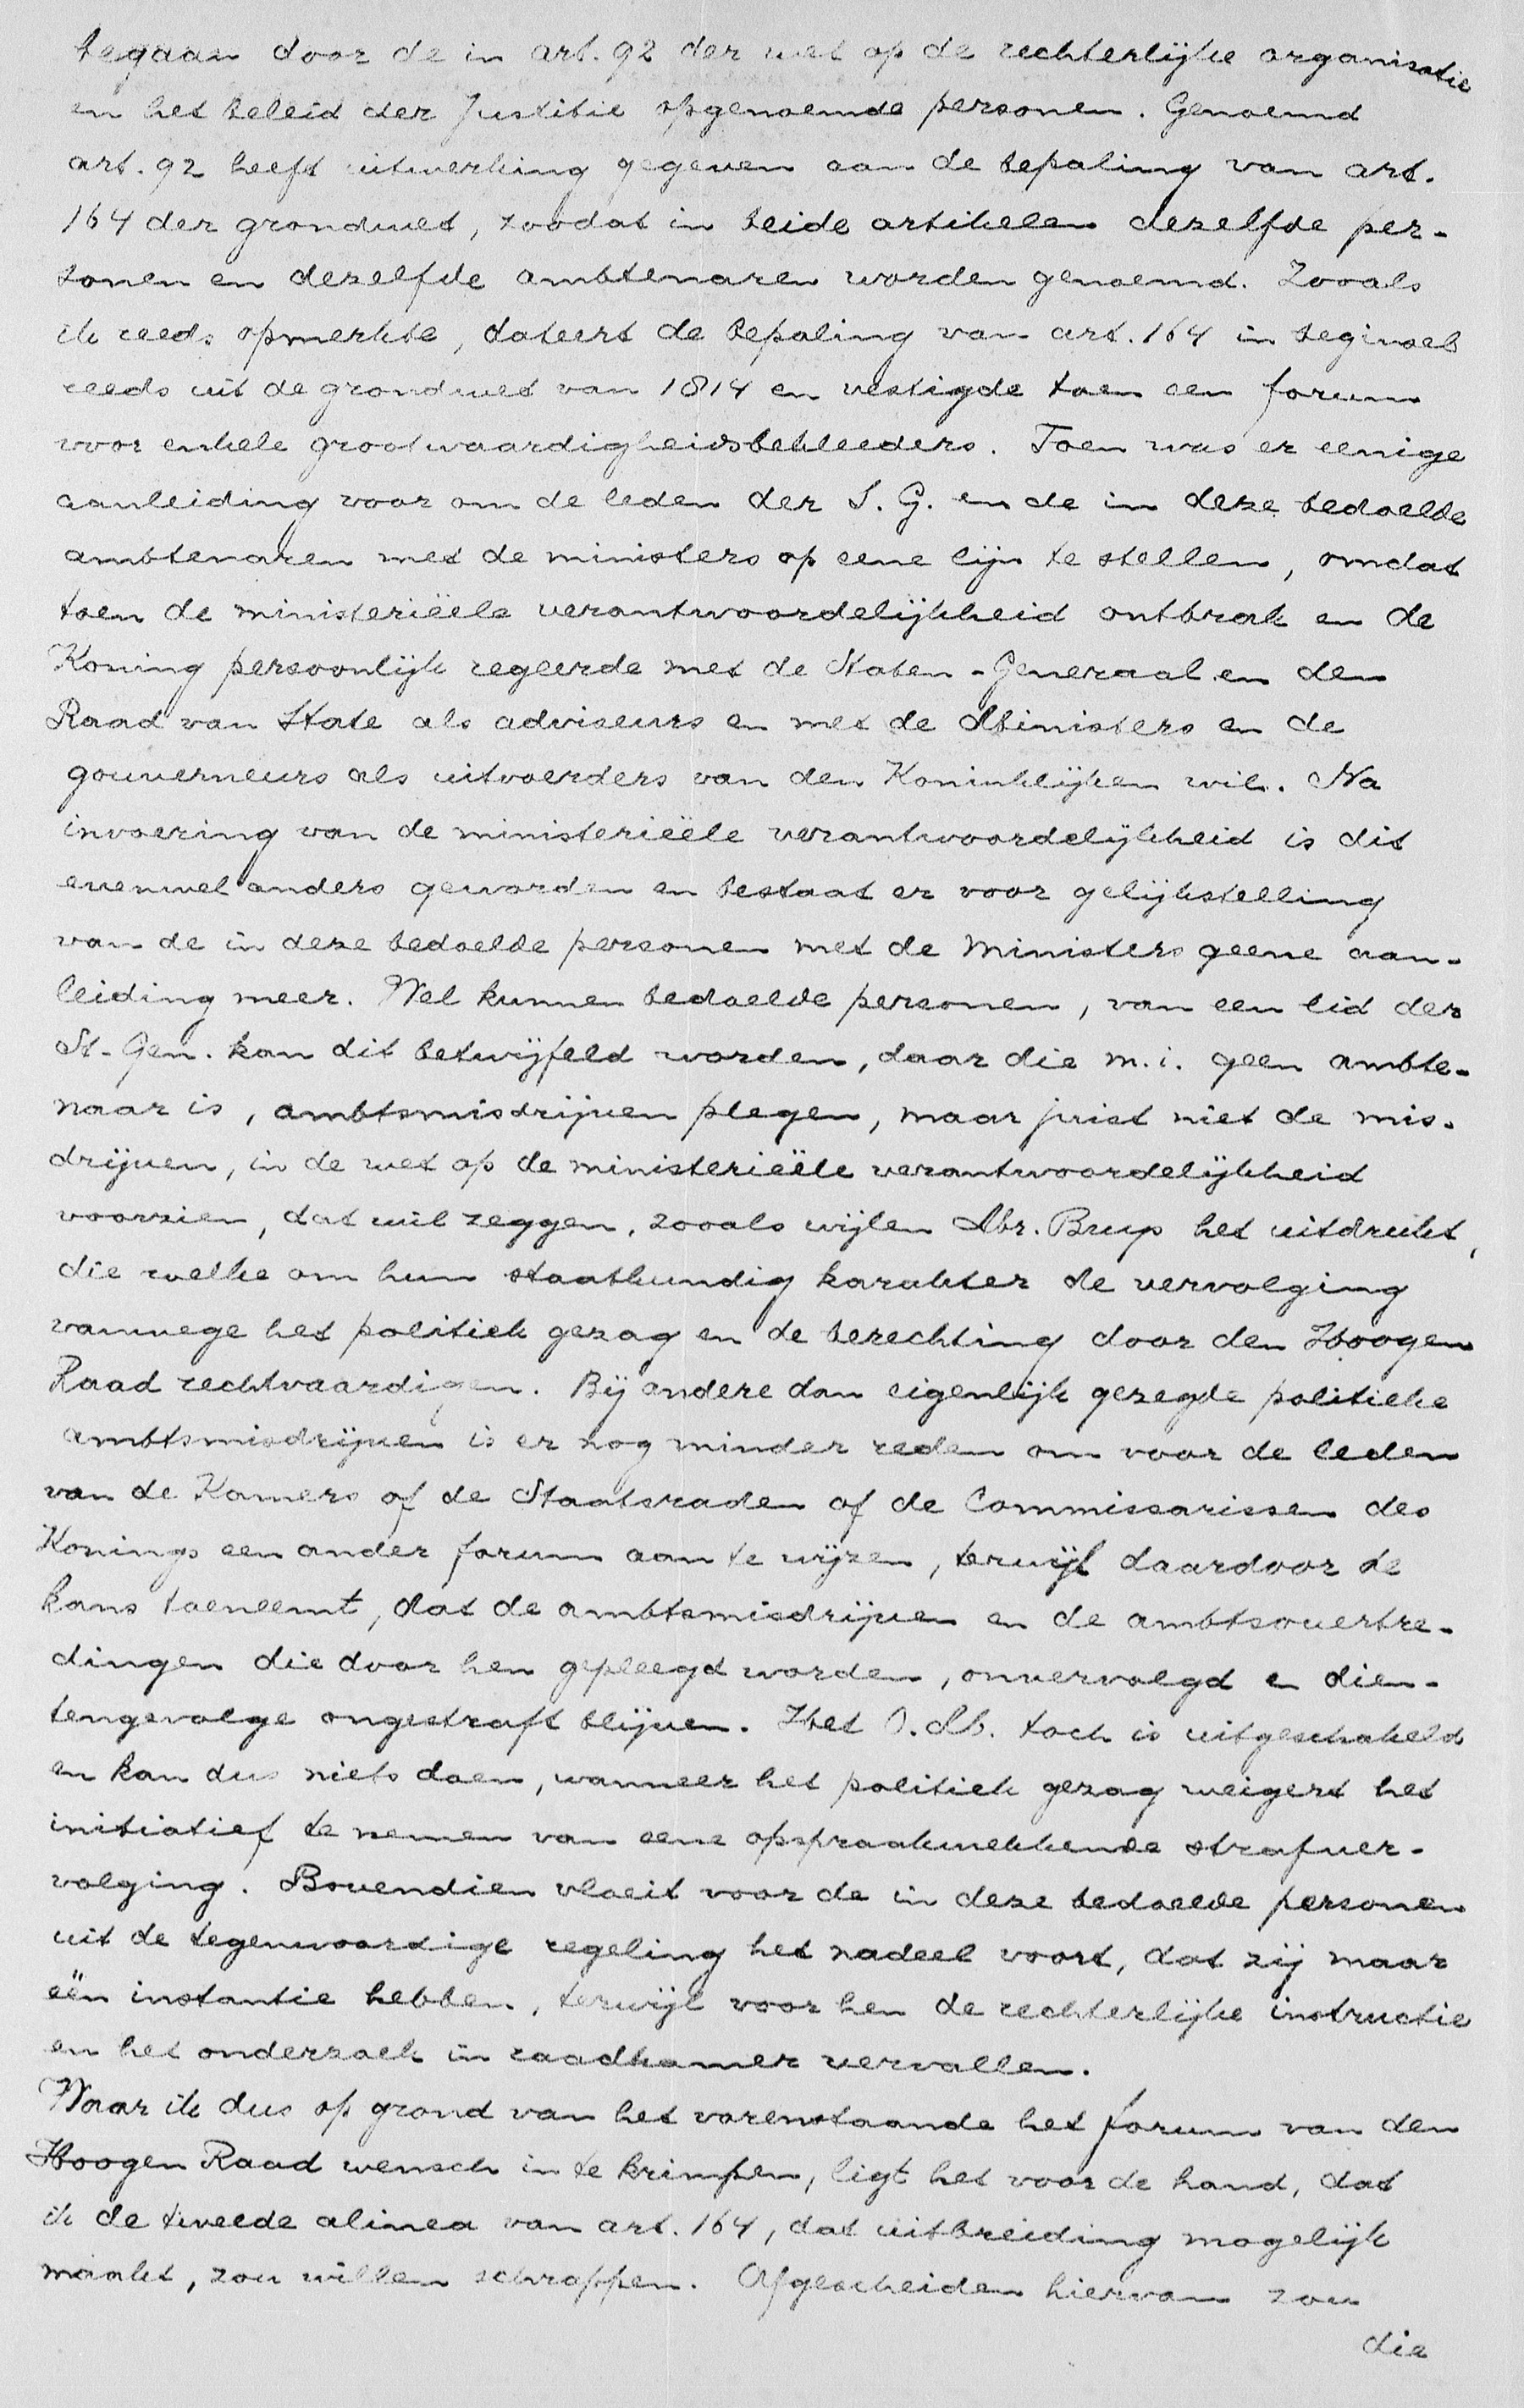 begaan door de in art. 92 der wet op de rechterlijke organisatie
en het beleid der Justitie opgenoemde personen. Genoemd
art. 92 heeft uitwerking gegeven aan de bepaling van art.
164 der grondwet, zoodat in beide artikelen dezelfde per-
sonen en dezelfde ambtenaren worden genoemd. Zooals
ik reeds opmerkte, dateert de bepaling van art. 164 in beginsel
reeds uit de grondwet van 1814 en vestigde toen een forum
voor enkele grootwaardigheidsbekleeders. Toen was er eenige
aanleiding voor om de leden der S. G. en de in deze bedoelde
ambtenaren met de ministers op eene lijn te stellen, omdat
toen de ministerièele verantwoordelijkheid ontbrak en de
Koning persoonlijk regeerde met de Staten-Generaal en den
Raad van State als adviseurs en met de Ministers en de
gouverneurs als uitvoerders van den Koninklijken wil. Na
invoering van de ministerieële verantwoordelijkheid is dit
evenwel anders geworden en bestaat er voor gelijkstelling
van de in deze bedoelde personen met de Ministers geene aan-
leiding meer. Wel kunnen bedoelde personen, van een lid der
St-Gen. kan dit betwijfeld worden, daar die m.i. geen ambte-
naar is, ambtsmisdrijven plegen, maar juist niet de mis-
drijven, in de wet op de ministerieële verantwoordelijkheid
voorzien, dat wil zeggen, zooals wijlen Mr. Brup het uitdrukt,
die welke om hun staatkundig karakter de vervolging
vanwege het politiek gezag en de berechting door den Hoogen
Raad rechtvaardigen. Bij andere dan eigenlijk gezegde politieke
ambtsmisdrijven is er nog minder reden om voor de leden
van de Kamers of de Staatsraden of de Commissarissen des
Konings een ander forum aan te wijzen, terwijl daardoor de
kans toeneemt, dat de ambtsmisdrijven en de ambtsovertre-
dingen die door hen gepleegd worden, onvervolgd en dien-
tengevolge ongestraft blijven. Het O.M. toch is uitgeschakeld
en kan dus niets doen, wanneer het politiek gezag weigert het
initiatief te nemen van eene opspraakwekkende strafver-
volging. Bovendien vloeit voor de in deze bedoelde personen
uit de tegenwoordige regeling het nadeel voort, dat zij maar
één instantie hebben, terwijl voor hen de rechterlijke instructie
en het onderzoek in raadkamer vervallen.
Waar ik dus op grond van het vorenstaande het forum van den
Hoogen Raad wensch in te krimpen, ligt het voor de hand, dat
ik de tweede alinea van art. 164, dat uitbreiding mogelijk
maakt, zou willen schrappen. Afgescheiden hiervan zou
die